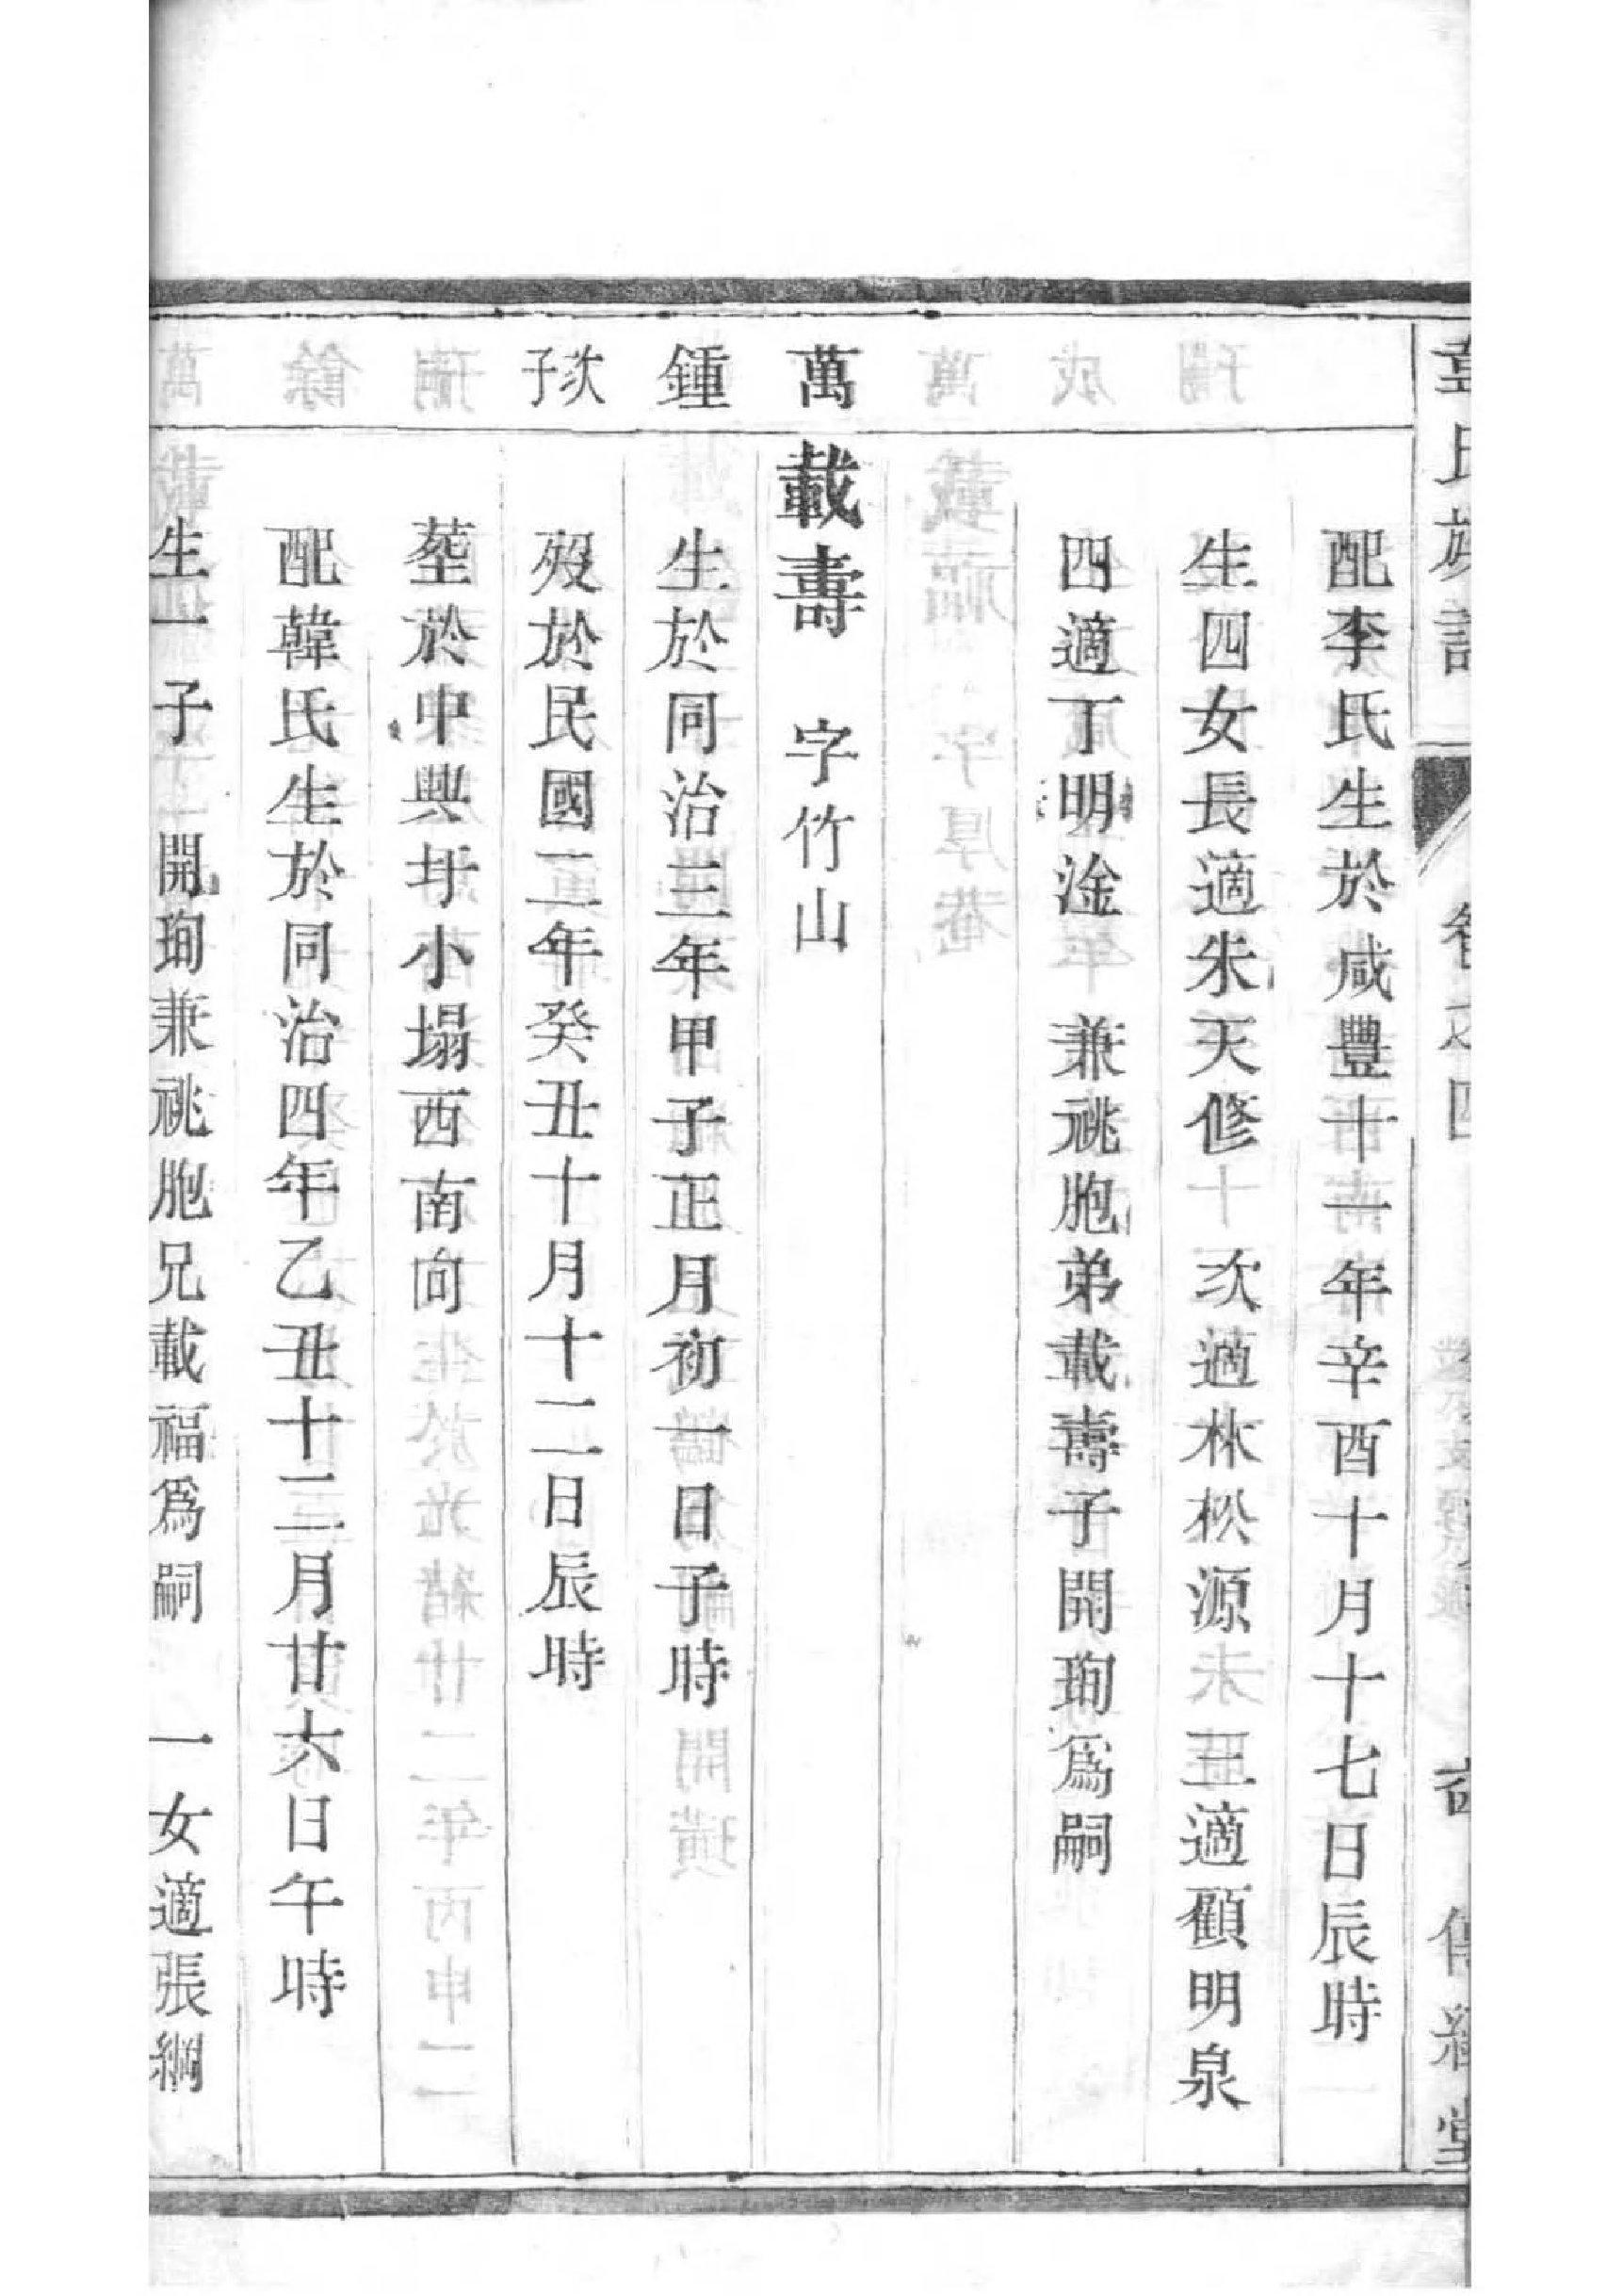 配李氏生於咸豐十一年辛酉十月十七日辰時
生四女長適朱天修 次適林松源 三適顧明泉
四適丁明淦 兼祧胞弟載壽子開珣為嗣
萬 載壽 字竹山
鍾 生於同治三年甲子正月初一日子時
次子 歿於民國二年癸丑十月十二日辰時
塟於中興圩小塌西南向
配韓氏生於同治四年乙丑十二月廿六日午時
生一子 開珣兼祧胞兄載福為嗣 一女適張綱